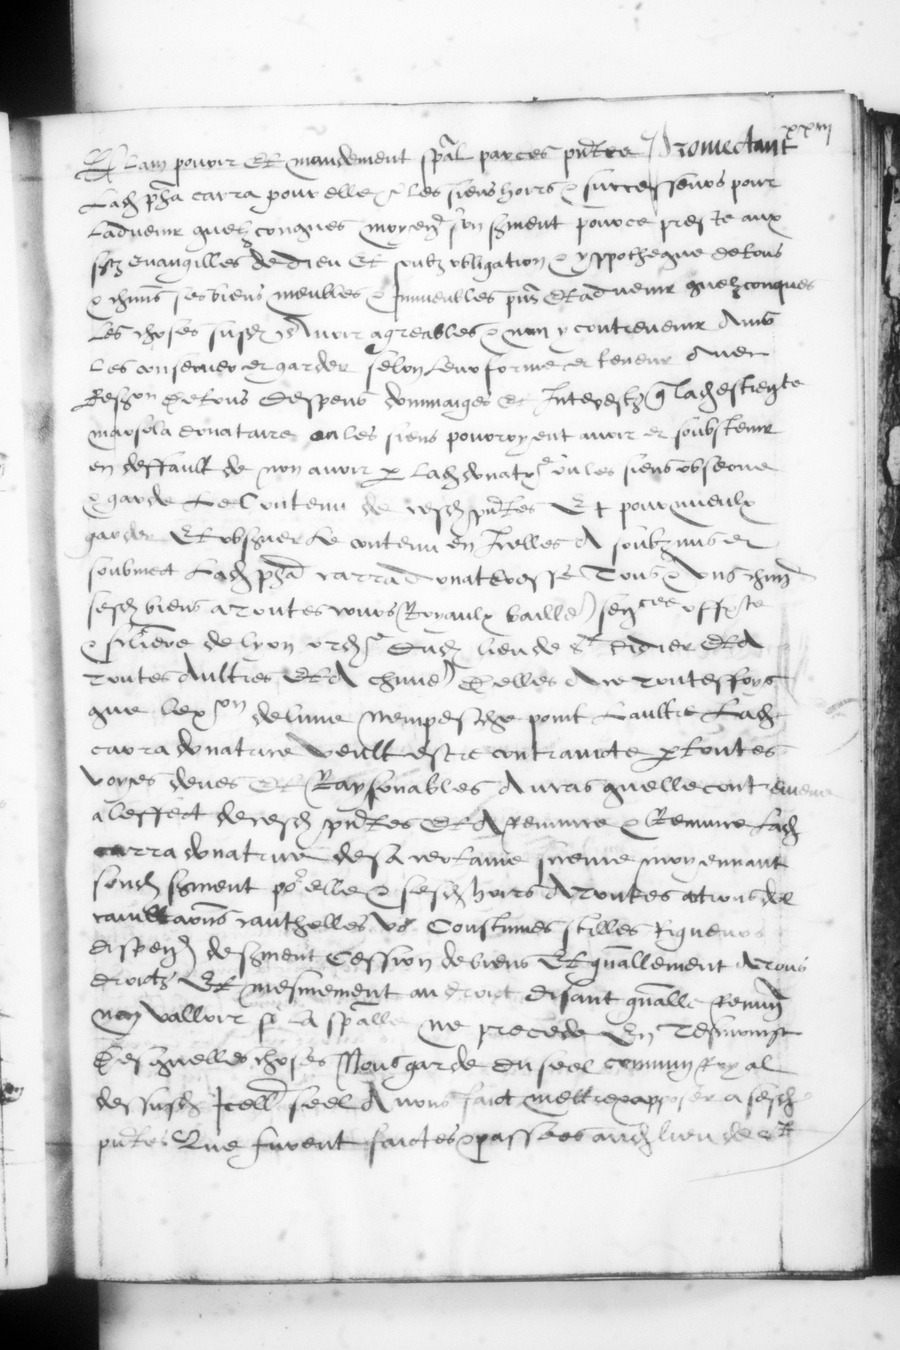 xxiii
Et Lam pouvoir Et mandement spal par ces pntes Promectant
Lad pha carra pour elle & les siens hoirs & successeurs pour
Ladvenir quelzconques moyen son sment pour ce preste aux
sts evangilles de dieu Et soubz obligation & yppotheque de tous
& chuns ses biens meubles & Immeubles pns Et advenir quelzconques
Les choses susd Avoir agreables & non y contrevenir Ains
Les conserver et garder selon Leur forme et teneur Avec
de tous Despens dommaiges Et Interestz q lad estiente
donataire ou les siens pourroyent avoir et soubstenir
en deffault de non avoir par lad donatxe ou les siens observe
& garde Le Contenu de cesd pntes Et pour mieulx
garder Et observer Le contenu en Icelles A soubzmis et
soubmect Lad pha carra donateresse Tous & ung chun
sesd biens a toutes cours Royaulx baille sencee
de lyon ord Dud lieu de st didier Et A
toutes Aultres Et A chune Delles Ace touteffoys
que lexon de lune Nempesche point Laultre Lad
carra donatrice veult estre contraincte par toutes
voyes deues Et Raysonables Au cas quelle contrevienne
a leffect de cesd pntes Et A renunce & Renunce Lad
carra donatrice de sa certaine science moyennant
sond sment po elle & sesd hoirs A toutes actions
cauthelles us Coustumes stilles Rigueurs
dispen de sment Cession de biens Et gnallement A tous
droictz Et mesmement au droict disant gnalle renun
non valloir si La spalle ne precede En Tesmoingt
Desquelles choses Nous garde du seel commun royal
dessusd Icell seel Avons faict mettre & apposer a sesd
pntes Que furent faictes & passees aud lieu de st